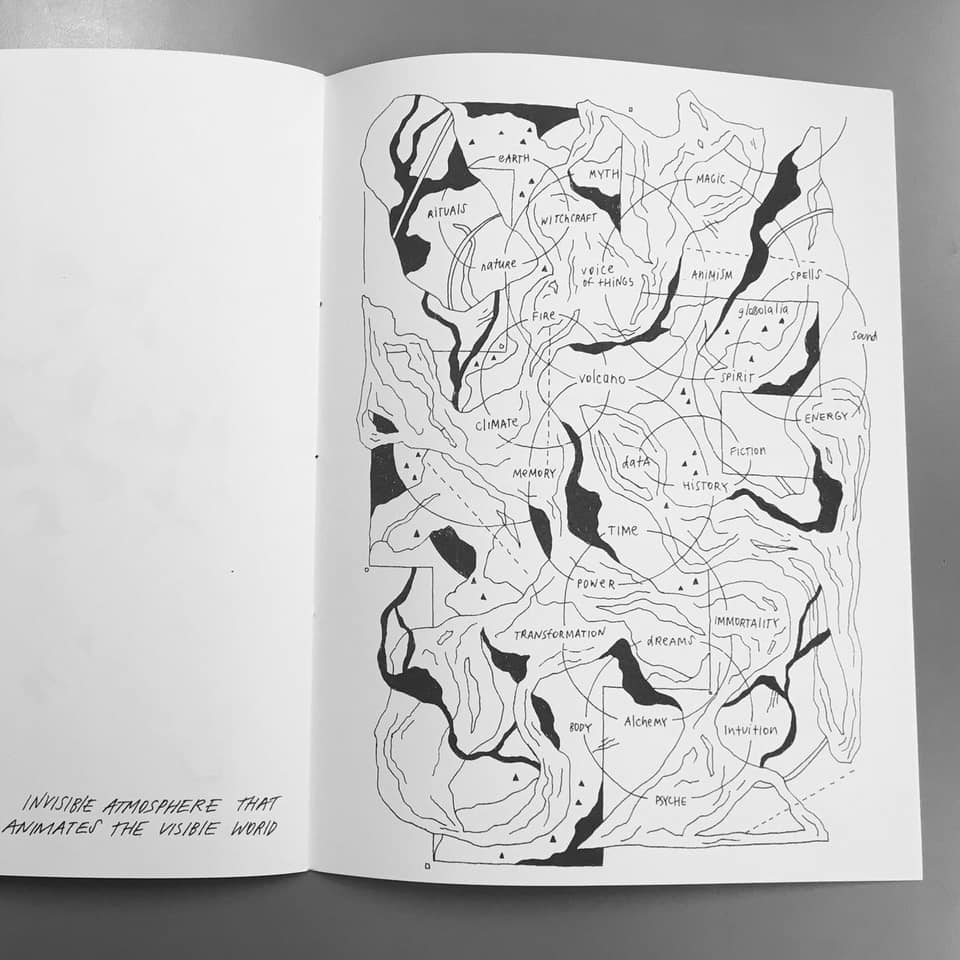 INVISIBLE ATMOSPHERE THAT
ANIMATES THE VISIBLE WORLD
EARTH
MYTH
MAGIC
RITUALS
WITCHCRAFT
nature
voice
OF THINGS
ANIMISM
SPELLS
FIRE
glosolalia
sound
volcano
SPIRIT
CLIMATE
ENERGY
MEMORY
datA
FICTION
HISTORY
TIME
POWER
TRANSFORMATION
dREAMS
IMMORTALITY
BODY
Alchemy
Intuition
PSYCHE